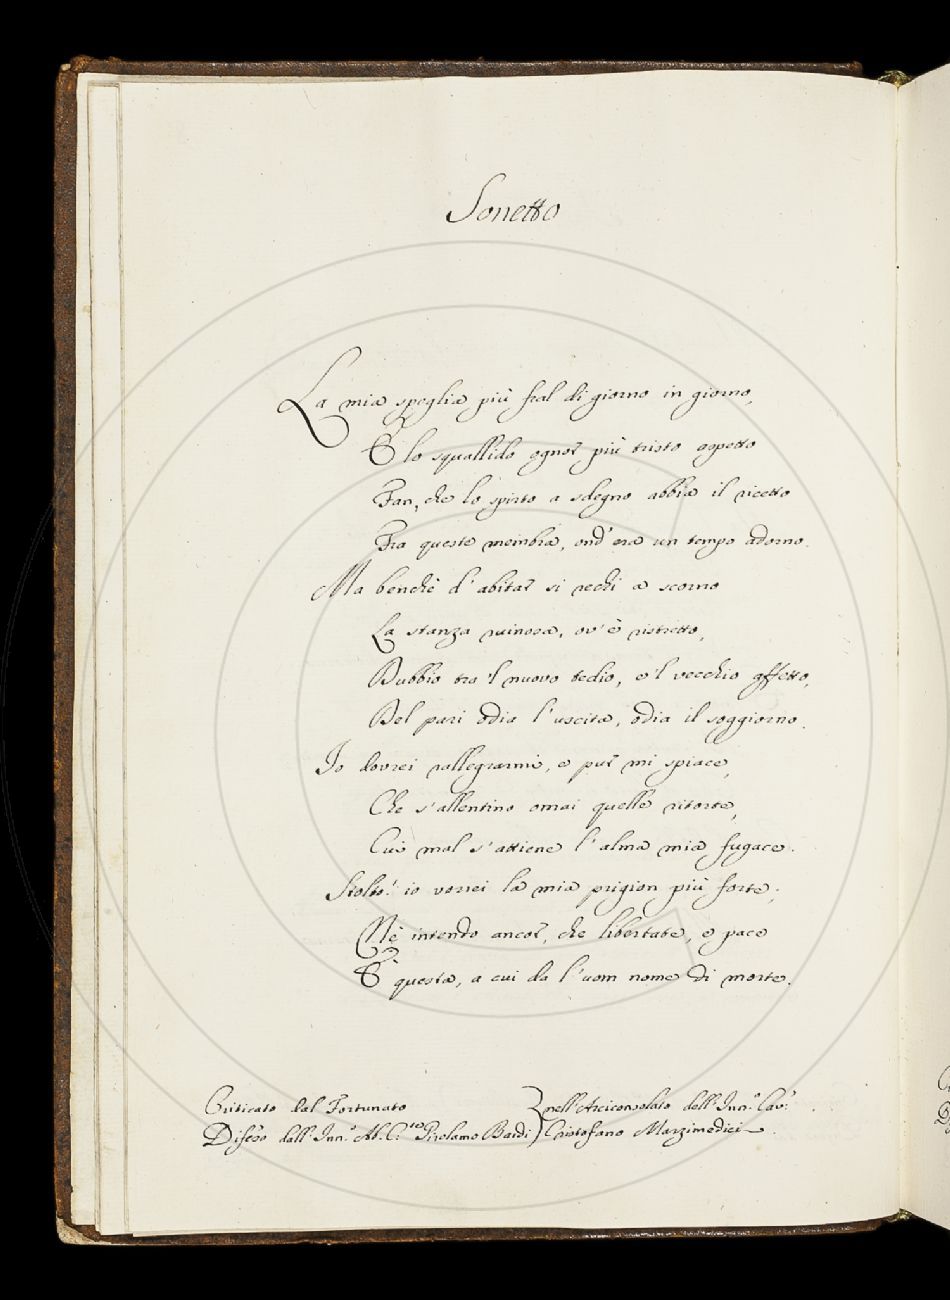 Sonetto
La mia speglia più fral di giorno in giorno,
E lo squallido ognor più tristo aspetto
Fan, che lo spirto a sdegno abbia il ricetto
Fra queste membra, ond' era un tempo adorno.
Ma benchè d' abitar si rechi a scorno
La stanza ruinosa, ov' è ristretto,
Dubbio tra 'l nuovo tedio, e 'l vecchio affetto,
Del pari odia l' uscita, odia il soggiorno.
Io dovrei rallegrarmi, e pur mi spiace,
Che s' allentino omai quelle ritorte,
Cui mal s' attiene l' alma mia fugace.
Stolto! io vorrei la mia prigion più forte;
Nè intendo ancor, che libertate, e pace
E' questa, a cui da l' uom nome di morte.
Criticato dal Fortunato
Difeso dall' Inn.° Ab. C.te Girolamo Bardi
nell' Arciconsolato dell' Inn.° Cav.r
Cristofano Marzimedici